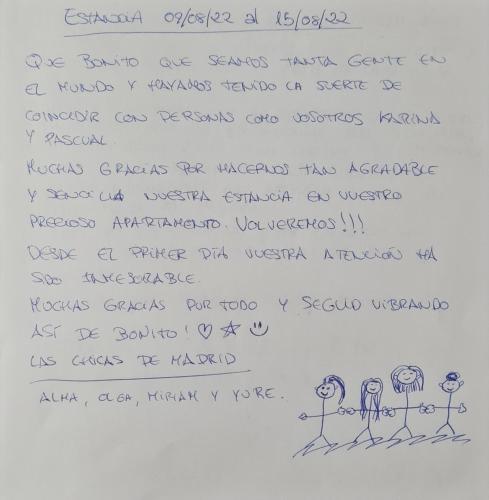 ESTANCIA 09/08/22 al 15/08/22
QUE BONITO QUE SEAMOS TANTA GENTE EN
EL MUNDO Y HAYAMOS TENIDO LA SUERTE DE
COINCIDIR CON PERSONAS COMO VOSOTROS KARINA
Y PASCUAL.
MUCHAS GRACIAS POR HACERNOS TAN AGRADABLE
Y SENCILLA NUESTRA ESTANCIA EN VUESTRO
PRECIOSO APARTAMENTO. VOLVEREMOS!!!
DESDE EL PRIMER DÍA VUESTRA ATENCIÓN HA
SIDO INMEJORABLE.
MUCHAS GRACIAS POR TODO Y SEGUID VIBRANDO
ASÍ DE BONITO! ♡ ☆ ☺
LAS CHICAS DE MADRID
ALMA, OLGA, MIRIAM Y YURE.